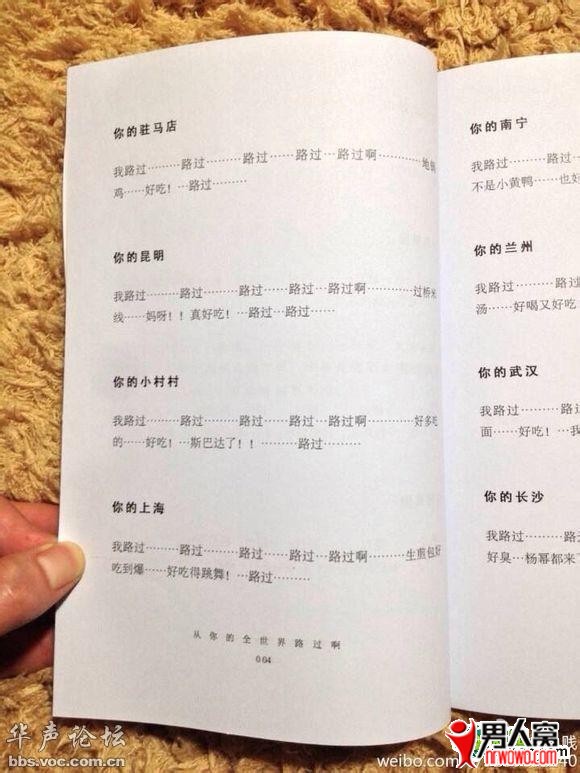 你的驻马店
我路过………路过………路过……路过…路过啊…………地锅
鸡……好吃！…路过………
你的昆明
我路过………路过………路过……路过…路过啊…………过桥米
线……妈呀！！真好吃！…路过…路过……
你的小村村
我路过………路过………路过……路过…路过啊…………好多吃
的……好吃！…斯巴达了！！………路过………
你的上海
我路过………路过………路过……路过…路过啊………生煎包好
吃到爆……好吃得跳舞！…路过………
从你的全世界路过啊
004
你的南宁
我路过………路过
不是小黄鸭……也好
你的兰州
我路过………路过
汤……好喝又好吃
你的武汉
我路过………路
面……好吃！…我
你的长沙
我路过………路
好臭…杨幂都来
华声论坛
bbs.voc.com.cn
男人窝
nrwowo.com
贱
weibo.com/
40